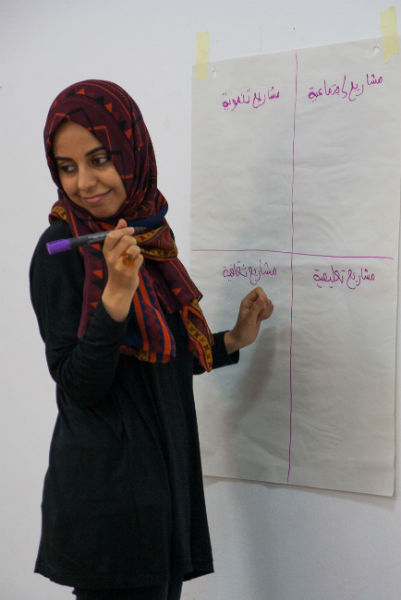 مشاريع إجتماعية
مشاريع تنموية
مشاريع تعليمية
مشاريع ثقافية